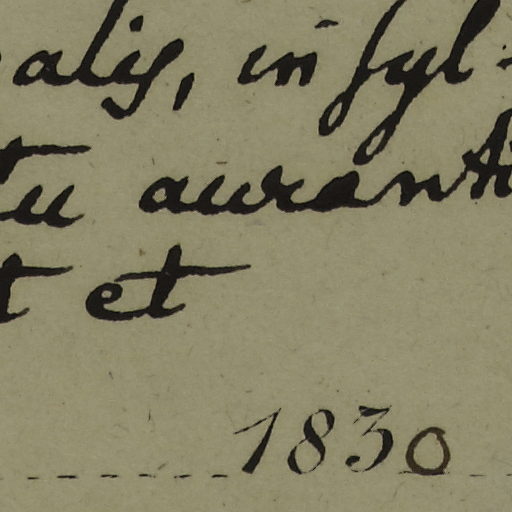 alis, in syl-
tu auranti
t et
1830